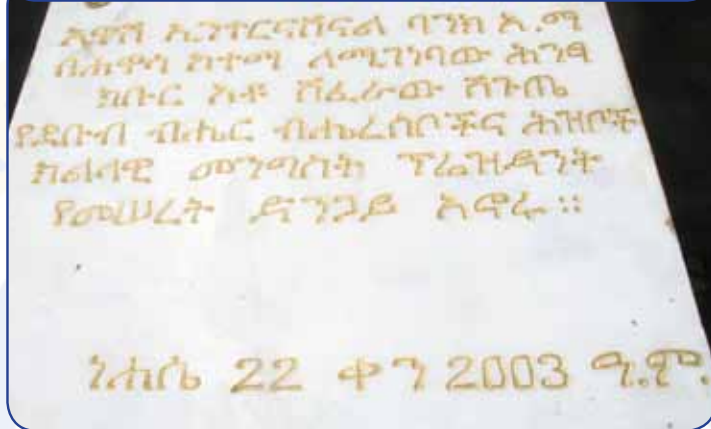 አዋሽ ኢንተርናሽናል ባንክ አ.ማ
በሐዋሳ ከተማ ለሚገነባው ሕንፃ
ክቡር አቶ ሽፈራው ሽጉጤ
የደቡብ ብሔር ብሔረሰቦችና ሕዝቦች
ክልላዊ መንግስት ፕሬዝዳንት
የመሠረት ድንጋይ አኖሩ።
ነሐሴ 22 ቀን 2003 ዓ.ም.